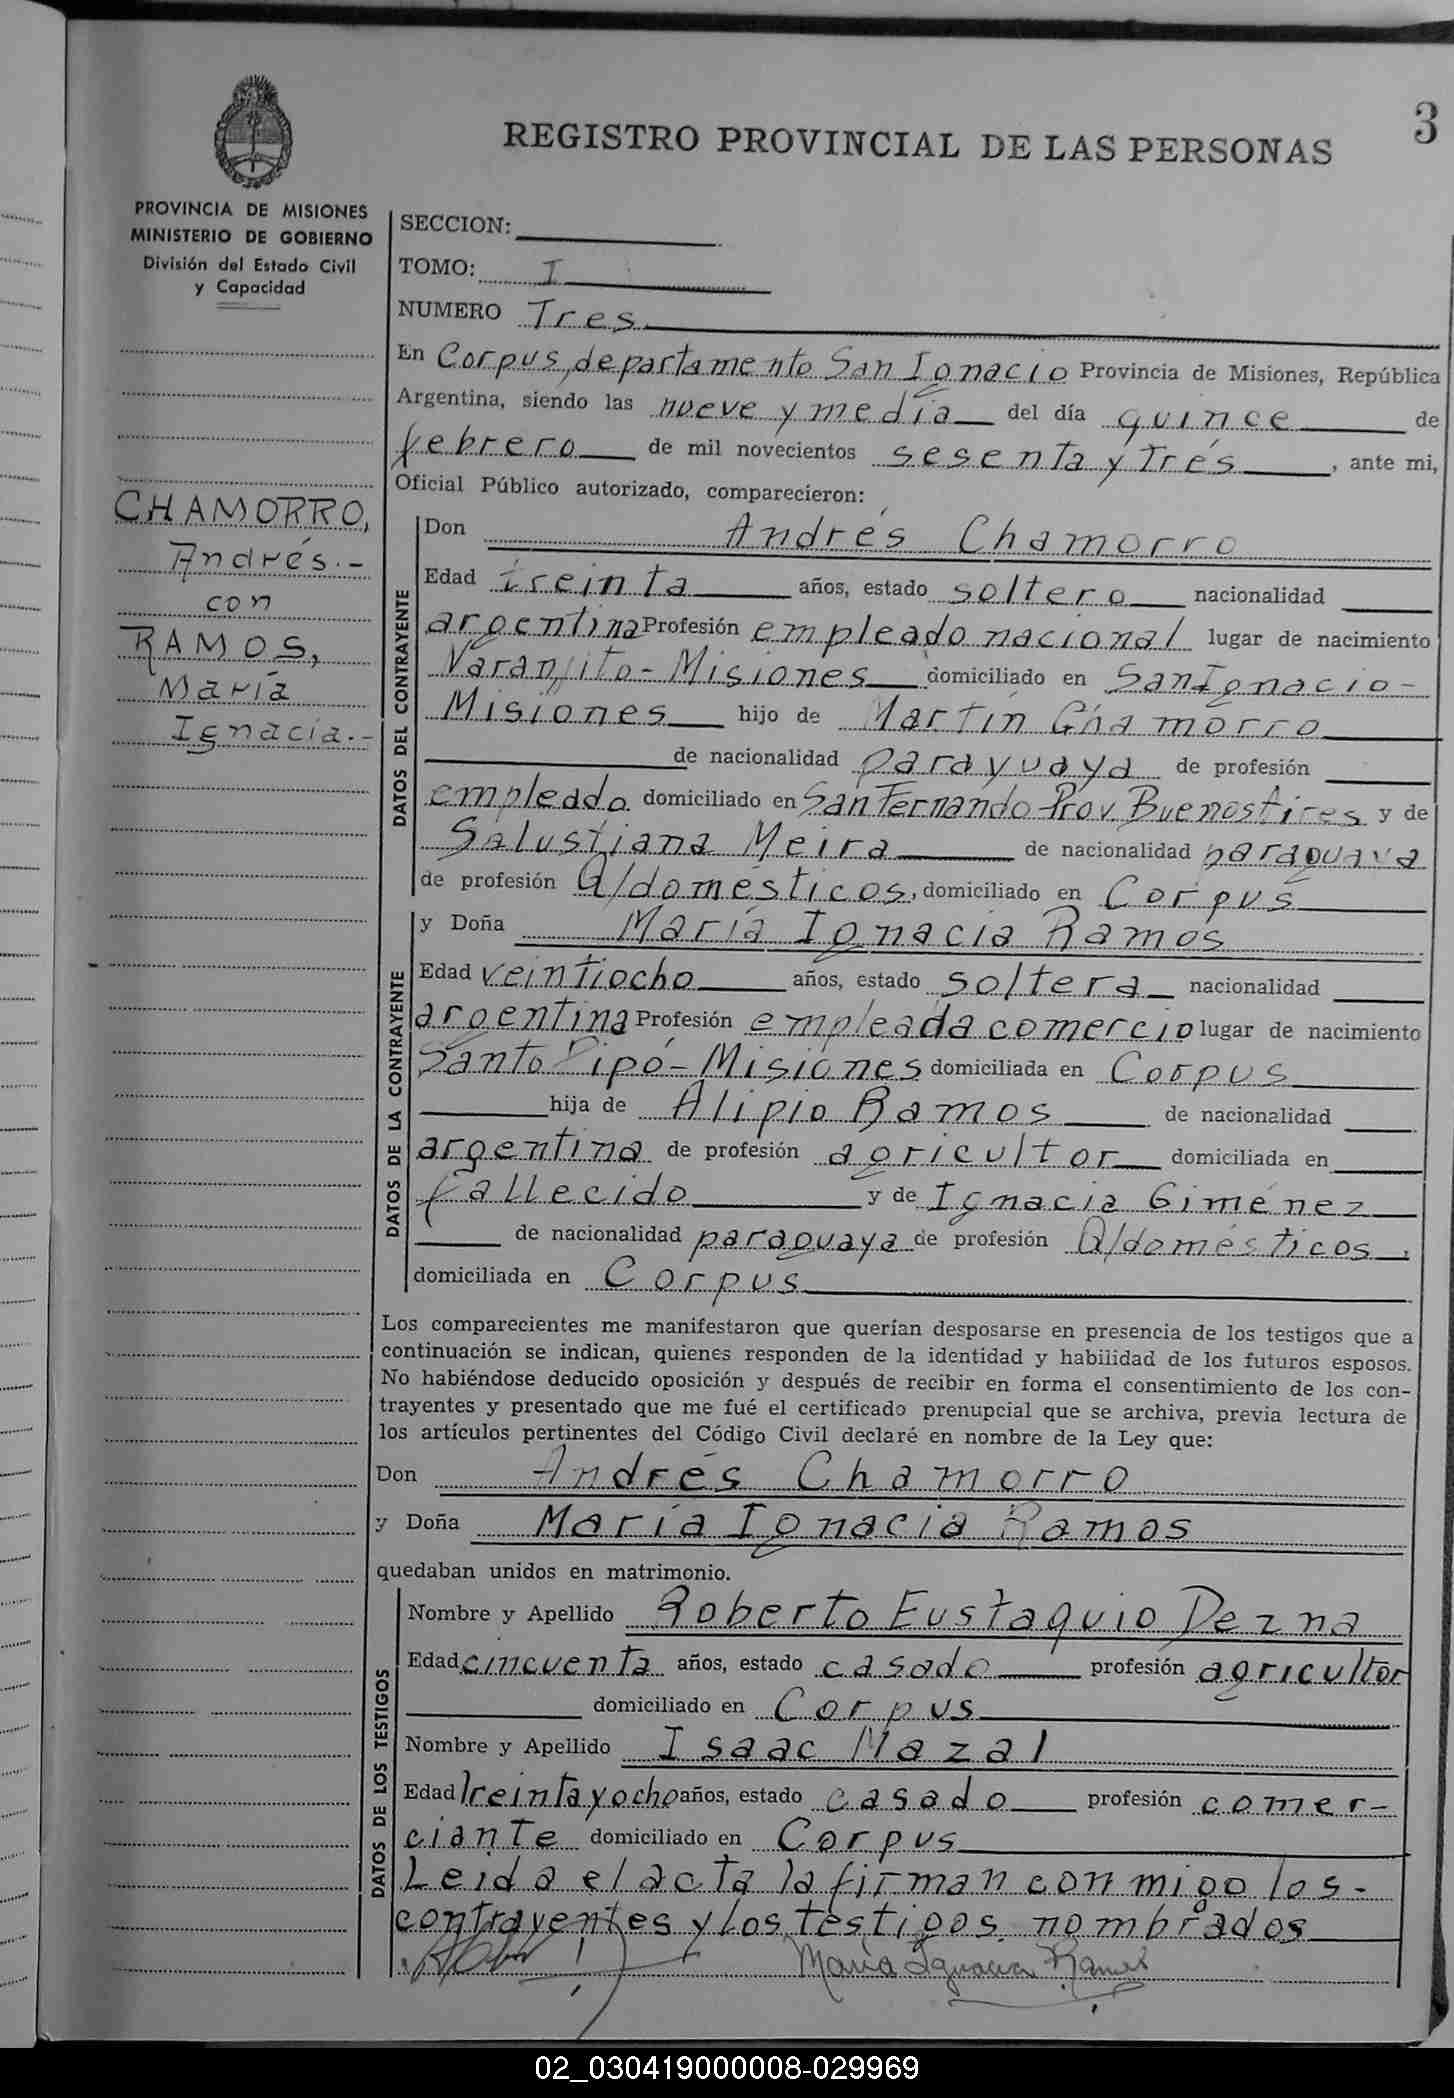 3
REGISTRO PROVINCIAL DE LAS PERSONAS
PROVINCIA DE MISIONES
MINISTERIO DE GOBIERNO
División del Estado Civil
y Capacidad
CHAMORRO,
Andrés.-
con
RAMOS,
María
Ignacia.-
SECCION:
TOMO: I
NUMERO Tres
En Corpus, departamento San Ignacio Provincia de Misiones, República
Argentina, siendo las nueve y media del día quince de
febrero de mil novecientos sesenta y Trés, ante mi,
Oficial Público autorizado, comparecieron:
DATOS DEL CONTRAYENTE
Don Andrés Chamorro
Edad treinta años, estado soltero nacionalidad
argentina Profesión empleado nacional lugar de nacimiento
Naranjito-Misiones domiciliado en San Ignacio-
Misiones hijo de Martín Chamorro
de nacionalidad parayuaya de profesión
empleado domiciliado en San Fernando-Prov. Buenos Aires y de
Salustiana Meira de nacionalidad paraguaya
de profesión Q/domésticos, domiciliado en Corpus
DATOS DE LA CONTRAYENTE
y Doña María Ignacia Ramos
Edad veintiocho años, estado soltera nacionalidad
argentina Profesión empleada comercio lugar de nacimiento
Santo Pipó-Misiones domiciliada en Corpus
hija de Alipio Ramos de nacionalidad
argentina de profesión agricultor domiciliada en
fallecido y de Ignacia Giménez
de nacionalidad paraguaya de profesión Q/domésticos,
domiciliada en Corpus
Los comparecientes me manifestaron que querían desposarse en presencia de los testigos que a
continuación se indican, quienes responden de la identidad y habilidad de los futuros esposos.
No habiéndose deducido oposición y después de recibir en forma el consentimiento de los con-
trayentes y presentado que me fué el certificado prenupcial que se archiva, previa lectura de
los artículos pertinentes del Código Civil declaré en nombre de la Ley que:
Don Andrés Chamorro
y Doña María Ignacia Ramos
quedaban unidos en matrimonio.
DATOS DE LOS TESTIGOS
Nombre y Apellido Roberto Eustaquio Dezna
Edad cincuenta años, estado casado profesión agricultor
domiciliado en Corpus
Nombre y Apellido Isaac Mazal
Edad treinta y ocho años, estado casado profesión comer-
ciante domiciliado en Corpus
Leida el acta la firman con migo los-
contrayentes y los testigos nombrados
María Ignacia Ramos
02_030419000008-029969